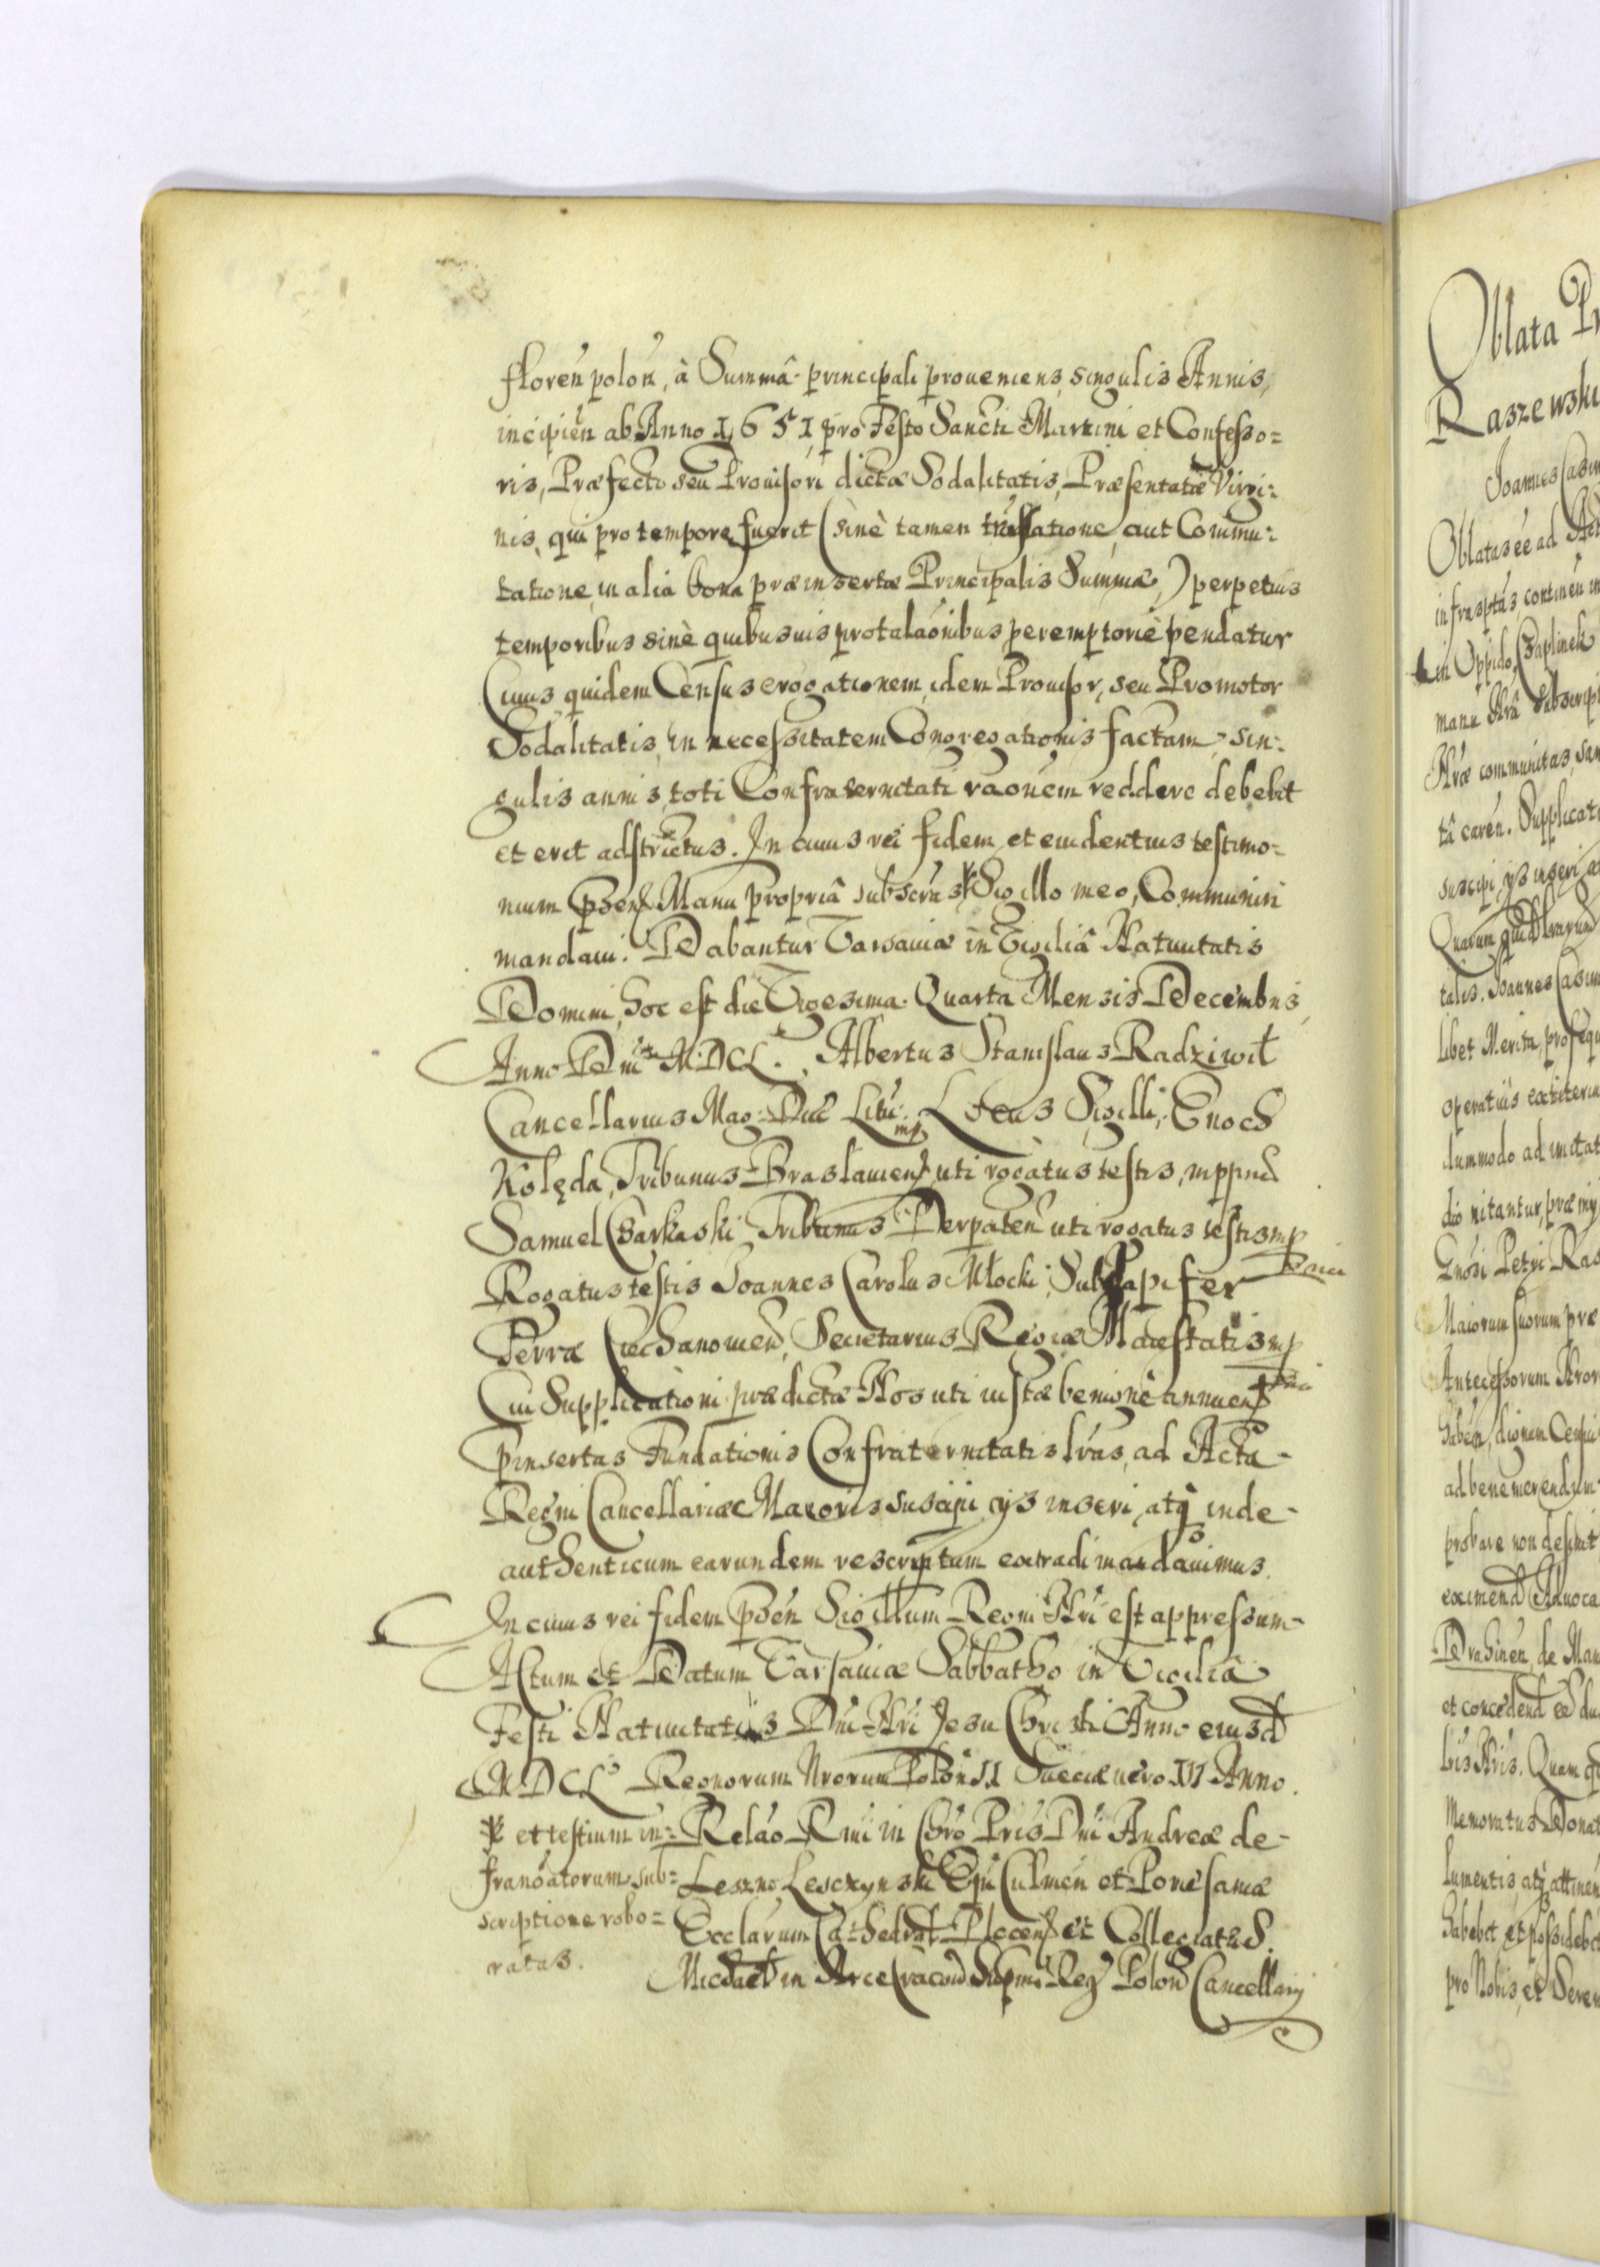 floren̄ polon̄, à Summâ principali proueniens, singulis Annis,
incipien̄ ab Anno 1651 pro Festo Sancti Martini et Confesso=
ris, Præfecto seu Prouisori dictæ Sodalitatis, Præsentatæ Virgi:
nis, qui pro tempore fuerit (sinè tamen aut Commu:
tatione, in alia bona præinsertæ Principalis Summæ,) perpetuis
temporibus sinè quibusuis protelaōnibus peremptoriè pendatur
Cuius quidem Census erogationem, idem Prouisor, seu Promotor
Sodalitatis, in necessitatem Congregationis factam, sin:
gulis annis toti Confraternitati raōnem reddere debebit
et erit adstrictus. In cuius rei fidem et euidentius testimo=
nium Manu propriâ subscrip Sigillo meo, Communiri
mandaui. Dabantur Varsauiæ in Vigiliâ Natiuitatis
Domini, hoc est die Vigesima Quarta Mensis Decembris,
Anno Dn̄i MDCL. Albertus Stanislaus Radziwił
Cancellarius Mag: Duc̄ Litu: mp Locus Sigilli; Enoch
Kolęda, Tribunus Braslauien̄ uti rogatus testis, mppria
Samuel Tribunus Derpaten̄ uti rogatus testis mp
pria
Rogatus testis Joannes Carolus Młocki, SubDapifer
Terræ Ciechanouien̄, Secretarius Regiæ Maiestatis mp
pria
Cui Supplicationi prædictæ Nos uti iustæ benignè annuen̄
pinsertas Fundationis Confraternitatis lrās, ad Acta
Regni Cancellariæ Maioris suscipi, ijs inseri atq̨ inde
authenticum earundem rescriptum extradi mandauimus.
In cuius rei fidem pn̄sen̄ Sigillum Regni Nrī est appressum
Actum et Datum Varsauiæ Sabbatho in Vigiliâ
Festi Natiuitatis Dn̄i Nrī Jesu Christi Anno eiusd
MDCL Regnorum Nrorum Polon̄ II Sueciæ uero III Anno.
et testium in=
franōatorum sub=
scriptione robo=
ratas.
Relaō Rn̄i in Chrō Prīs Dn̄i Andreæ de
Leszno Leszczynski Epi̅ Culmen̄ et Pomesaniæ
Ecclarum Cathedral Plocen̄ et Collegiatæ S.
Michael in Arce Cracou̅ Supmi Reg Polon̄ Cancellarij
Oblata Pr
Raszewski
Joannes Casim
Oblatas eē ad Act
infrasptas continen̄ in
in Oppido, Czaplinek
manu Nrâ Subscript
Nræ communitas, san
tâ caren̄. Supplicatu
suscipi, ijs inseri, at
talis. Joannes Casim
libet Merita, prosequ
operatius extiterin
dummodo ad imitat
dio nitantur, præmij
Gn̄osi Petri Ras
Maiorum suorum præ
Antecessorum Nror
ad benemerendum
probare non desinit
eximend Aduoca
Drahinen̄, de Man
et concedend eē du
bis Nris. Quam q
Memoratus Donat
lumentis, atq̨ attinen̄
habebit et possidebit
pro Nobis, et Seren